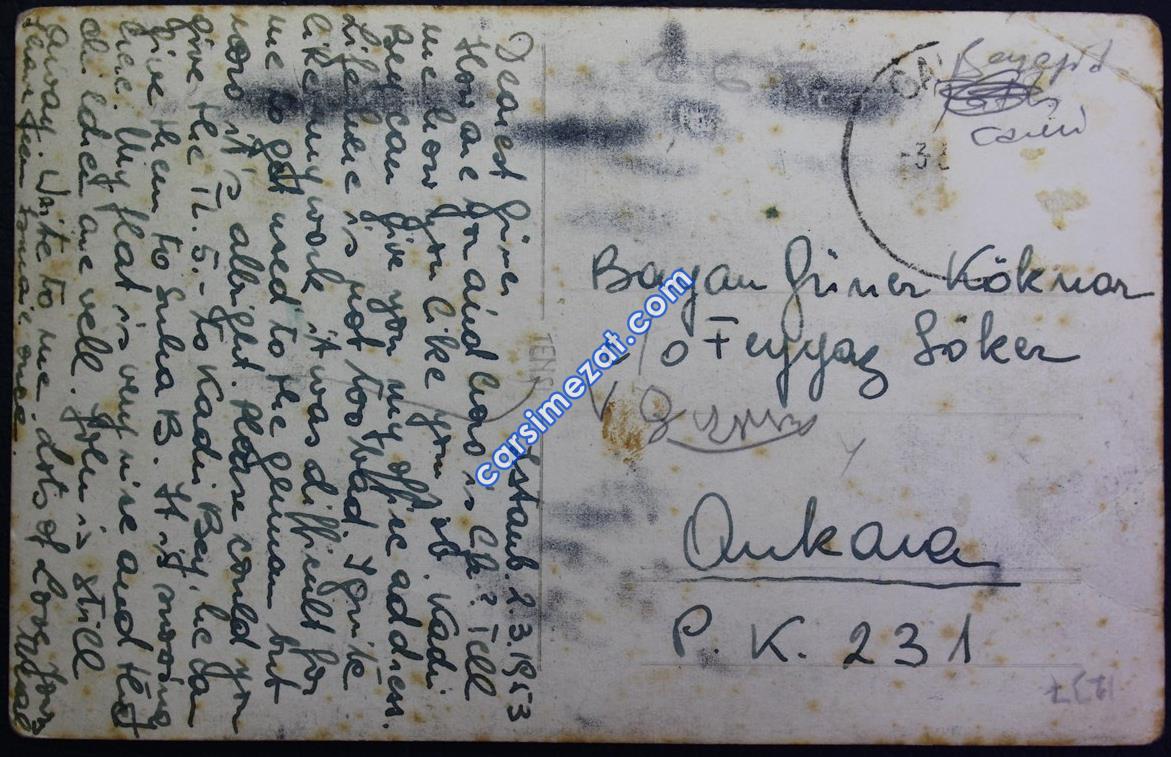 Istanb. 2.3.1953
Dearest Güner
How are you and how is Cik? Tell
me how you like your job. Kadi
Bey can give you my office address.
Life here is not too bad. I quite
like my work it was difficult for
me to get used to the german but
now it's allright. Please could you
give the TL. 5.- to Kadi Bey, he can
give them to Suha B. It is snowing
here. My flat is very nice and the
children are well. John is still
away. Write to me. Lots of Love yours
BAYAZIT
camii
Bayan Güner Köknar
c/o Feyyaz Söker
Ankara
P. K. 231
carsimezat.com